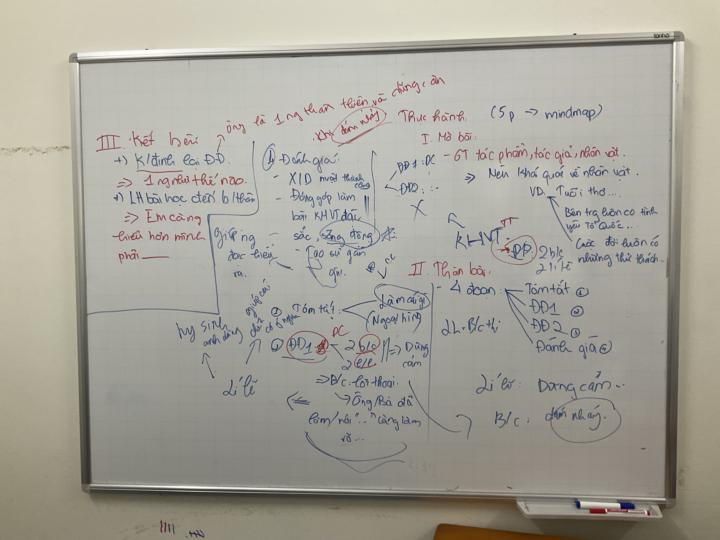 ông là 1 ng thân thiện và
III. Kết bài:
+) K/định lại ĐĐ.
=> 1 người thế nào.
+) LH bài học đến b/thân
=> Em càng
hiểu hơn mình
phải
④ Đánh giá
- X/D
- Đóng góp làm
bài KHVT đặc
sắc, sống động
- Tạo sự gần
gũi.
giúp ng
đọc hiểu
ra.
Thực hành (5p → mindmap)
I. Mở bài
- GT tác phẩm, tác giả, nhân vật.
=> Nêu khái quát về nhân vật.
VD. Tuổi thơ...
Bên trg luôn có tình
yêu Tổ Quốc...
Cuộc đời luôn có
những thử thách..
ĐĐ1: DC
ĐĐ2:
X
KHVT
TT
ĐĐ
2 b/c
2 lí lẽ
II. Thân bài.
- 4 đoạn:
Tóm tắt ①
ĐĐ1 ②
ĐĐ2 ③
Đánh giá ④
2L. B/c thị
Lí lẽ: Dũng cảm..
B/c:
Tóm tắt:
Làm cái gì
Ngoại hình
ĐĐ1
DC
2 b/c
2 l/lẽ
=> Dũng
cảm
=> B/c: lời thoại.
Ông/Bà đã
làm/nói "..." càng làm
rõ...
hy sinh
anh dũng
Lí lẽ